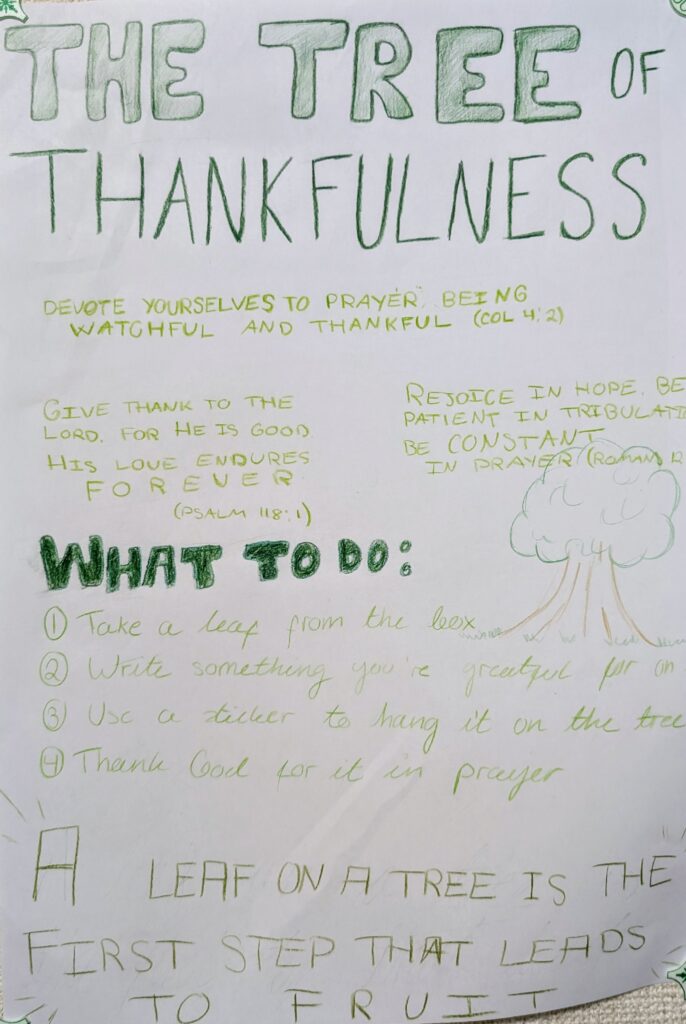 THE TREE OF
THANKFULNESS
DEVOTE YOURSELVES TO PRAYER, BEING
WATCHFUL AND THANKFUL (COL 4:2)
GIVE THANK TO THE
LORD. FOR HE IS GOOD.
HIS LOVE ENDURES
FOREVER
(PSALM 118:1)
REJOICE IN HOPE. BE
PATIENT IN TRIBULATI
BE CONSTANT
IN PRAYER (ROMANS 12
WHAT TO DO:
① Take a leaf from the box
② Write something you're greatful for on
③ Use a sticker to hang it on the tree
④ Thank God for it in prayer
A LEAF ON A TREE IS THE
FIRST STEP THAT LEADS
TO FRUIT